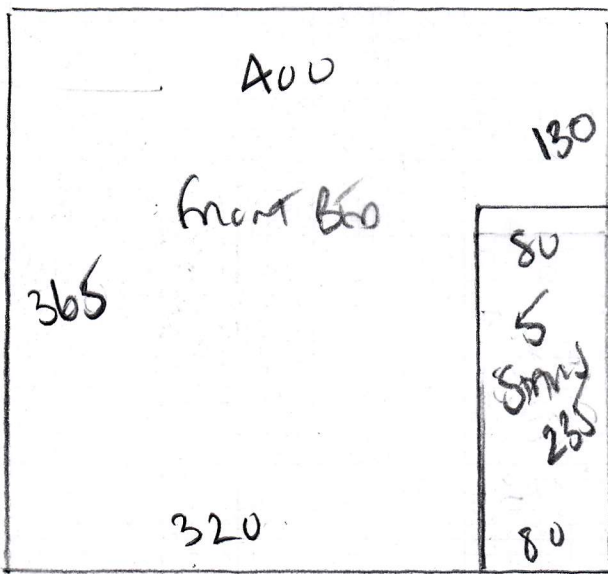 400
130
Front Bed
80
365
5
235
320
80